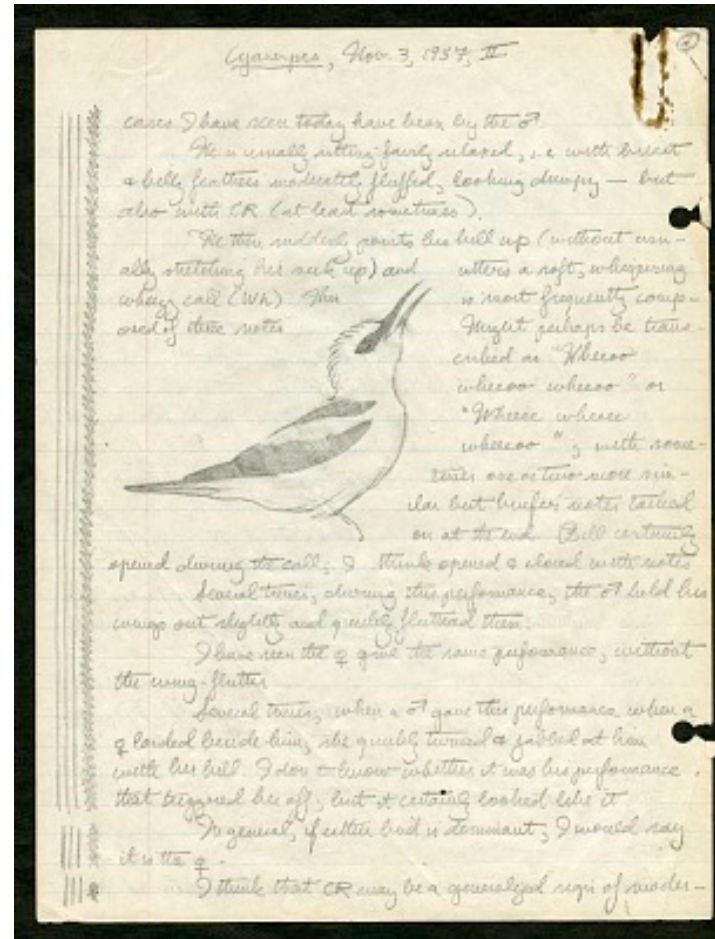 Cyanerpes, Nov. 3, 1957, II
cases I have seen today have been by the ♂.
He is usually sitting fairly relaxed, i.e. with breast
& belly feathers moderately fluffed, looking dumpy — but
also with CR (at least sometimes).
He then suddenly points his bill up (without usu-
ally stretching his neck up) and utters a soft, whispering
wheezy call (Wh). This is most frequently comp-
osed of three notes. Might perhaps be trans-
cribed as "Wheeoo
wheeoo wheeoo" or
"Wheeee wheeee
wheeoo"; with some-
times one or two more sim-
ilar but briefer notes tacked
on at the end. Bill certainly
opened during the call; I think opened & closed with notes
Several times, during this performance, the ♂ held his
wings out slightly and quickly fluttered them.
I have seen the ♀ give the same performance, without
the wing-flutter
Several times, when a ♂ gave this performance when a
♀ landed beside him, she quickly turned & jabbed at him
with her bill. I don't know whether it was his performance
that triggered her off, but it certainly looked like it
In general, if either bird is dominant, I would say
it is the ♀.
I think that CR may be a generalized sign of moder-